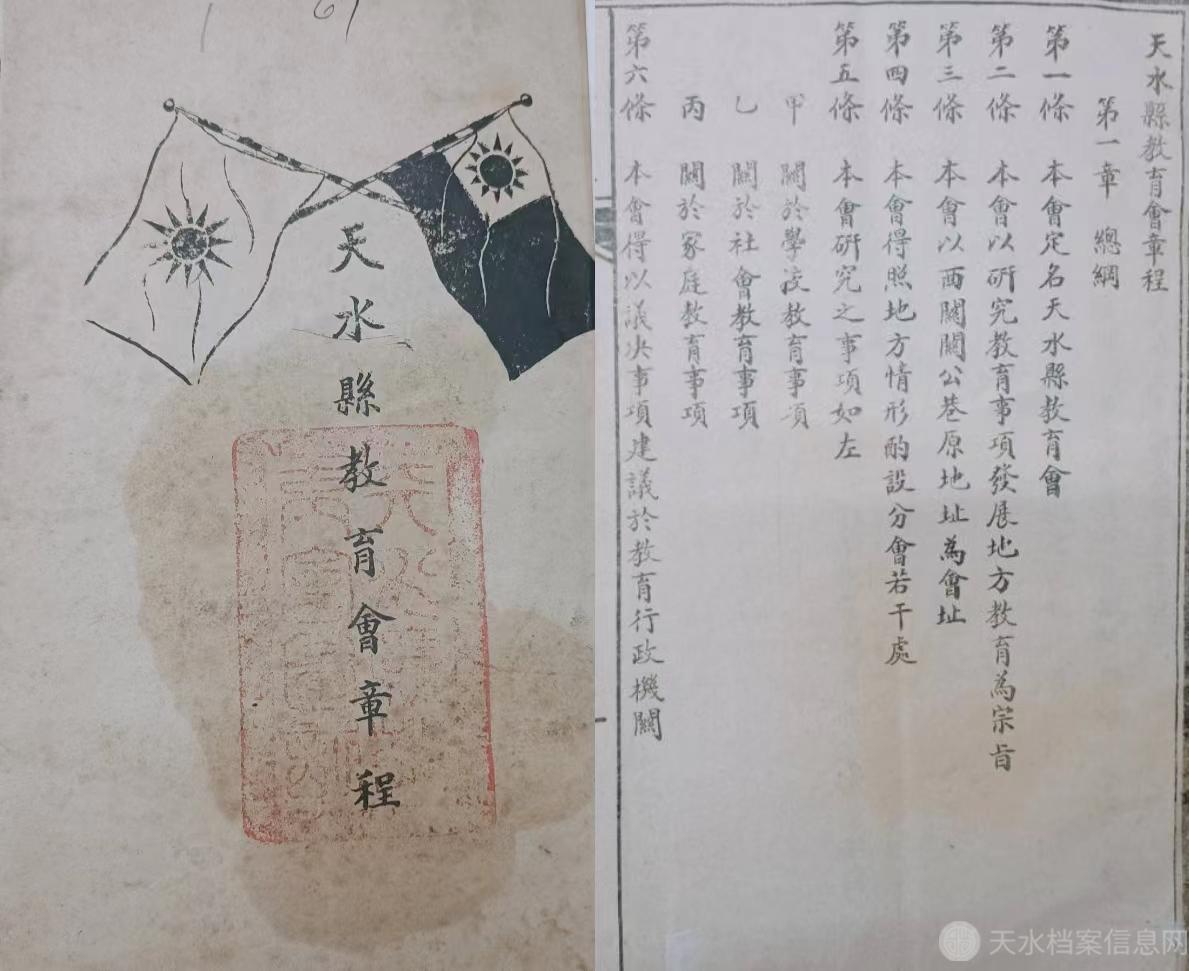 1
61
天水縣教育會章程
天水縣教育會章程
第一章 總綱
第一條 本會定名天水縣教育會
第二條 本會以研究教育事項發展地方教育為宗旨
第三條 本會以西關關公巷原地址為會址
第四條 本會得照地方情形酌設分會若干處
第五條 本會研究之事項如左
甲 關於學校教育事項
乙 關於社會教育事項
丙 關於家庭教育事項
第六條 本會得以議决事項建議於教育行政機關
天水档案信息网